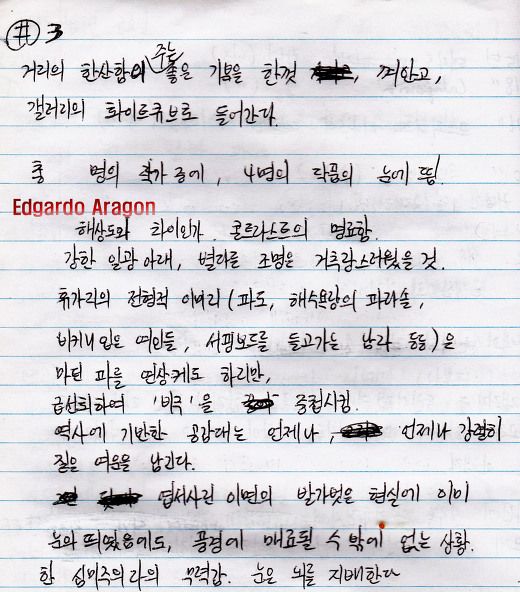 #3
거리의 한산함이 주는 좋은 기분을 한껏 , 껴안고,
갤러리의 화이트큐브로 들어간다.
총 명의 작가 중에, 4명의 작품의 눈에 띔.
Edgardo Aragon
해상도와 화이트가. 콘트라스트의 명료함.
강한 일광 아래, 별다른 조명은 거추장스러웠을 것.
휴가지의 전형적 이미지 (파도, 해수욕장의 파라솔,
비키니 입은 여인들, 서핑보드를 들고가는 남자 등등)은
마틴 파를 연상케도 하지만,
급선회하여 '비극'을 중첩시킴.
역사에 기반한 공감대는 언제나, 언제나 강렬히
짙은 여운을 남긴다.
엽서사진 이면의 발가벗은 현실에 이미
눈이 띄였음에도, 풍경에 매료될 수 밖에 없는 상황.
한 심미주의자의 무력감. 눈은 뇌를 지배한다